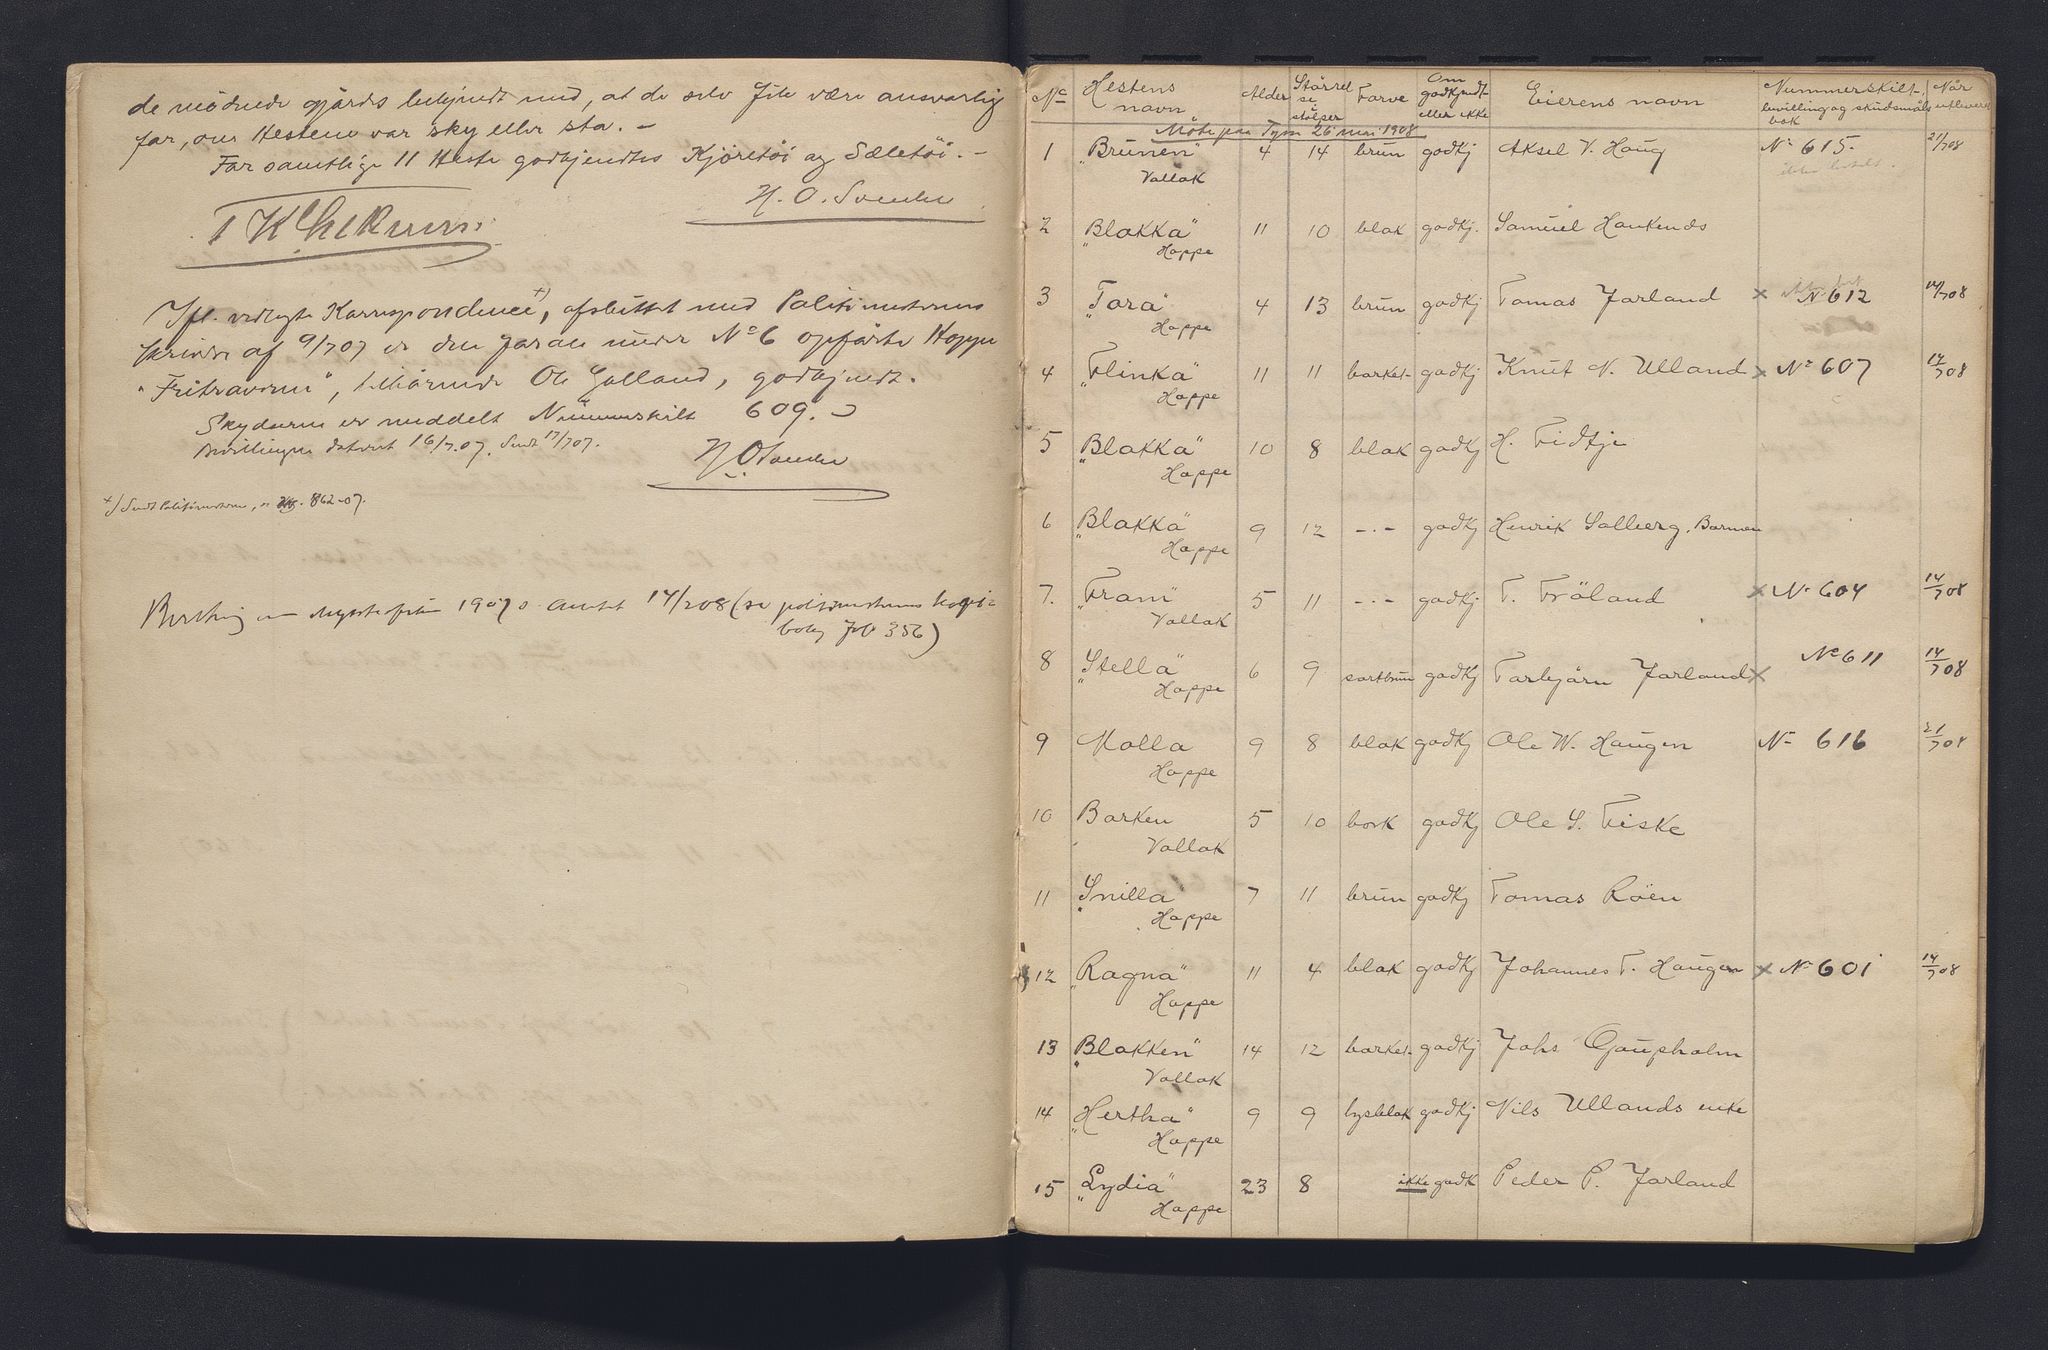 de mödende gjördes bekjendt med, at de selv fik være ansvarlig
for, om Hestene var sky eller sta. –
For samtlige 11 Heste godkjendtes Kjöretöi og Sæletöi. –
H. O.
Ifl. vedlagte Korrespondence +), afsluttet med Politimesterens
skrivelse af 9/7 07 er den foran under No 6 opförte Hoppe
"    ", tilhörende Ole Golland, godkjendt.
Skydseren er meddelt Nummerskilt 609.
Bevillingen dateret 16/7.07. Sendt 17/7 07.
H. O.
+) Sendt Politimesteren, 862-07.
1907 Amtet 14/2 08 (se politimesterens kopi=
bog fol 356)
No Hestens navn Alder Störrelse stolper Farve Om godkjendt eller ikke Eierens navn Nummerskilt, bevilling og skudsmåls bok Når utleveret
Möte paa Tyin 26 mai 1908
1 "Brunen" Vallak 4 14 brun godkj Aksel V. Haug No 615. 21/7 08
2 "Blakka" Hoppe 11 10 blak godkj. Samuel Haukenæs
3 "Tora" Hoppe 4 13 brun godkj Tomas Jarland x No 612 14/7 08
4 "Flinka" Hoppe 11 11 borket godkj Knut N. Ulland x No 607 14/7 08
5 "Blakka" Hoppe 10 8 blak godkj H. Fidtje
6 "Blakka" Hoppe 9 12 -·- godkj Henrik Solberg, Barmen
7. "Fram" Vallak 5 11 -·- godkj T. Fröland x No 604 14/7 08
8 "Stella" Hoppe 6 9 sortbrun godkj Torbjörn Jarland x No 611 14/7 08
9 Molla Hoppe 9 8 blak godkj Ole W. Haugen No 616 21/7 08
10 Borken Vallak 5 10 bork godkj Ole S. Fiske
11 "Snilla" Hoppe 7 11 brun godkj Tomas Röen
12 "Ragna" Hoppe 11 4 blak godkj Johannes T. Haugen x No 601 14/7 08
13 "Blakken" Vallak 14 12 borket godkj Johs Gaupholm
14 "Hertha" Hoppe 9 9 lysblak godkj Nils Ullands enke
15 "Lydia" Hoppe 23 8 ikke godk Peder P. Jarland